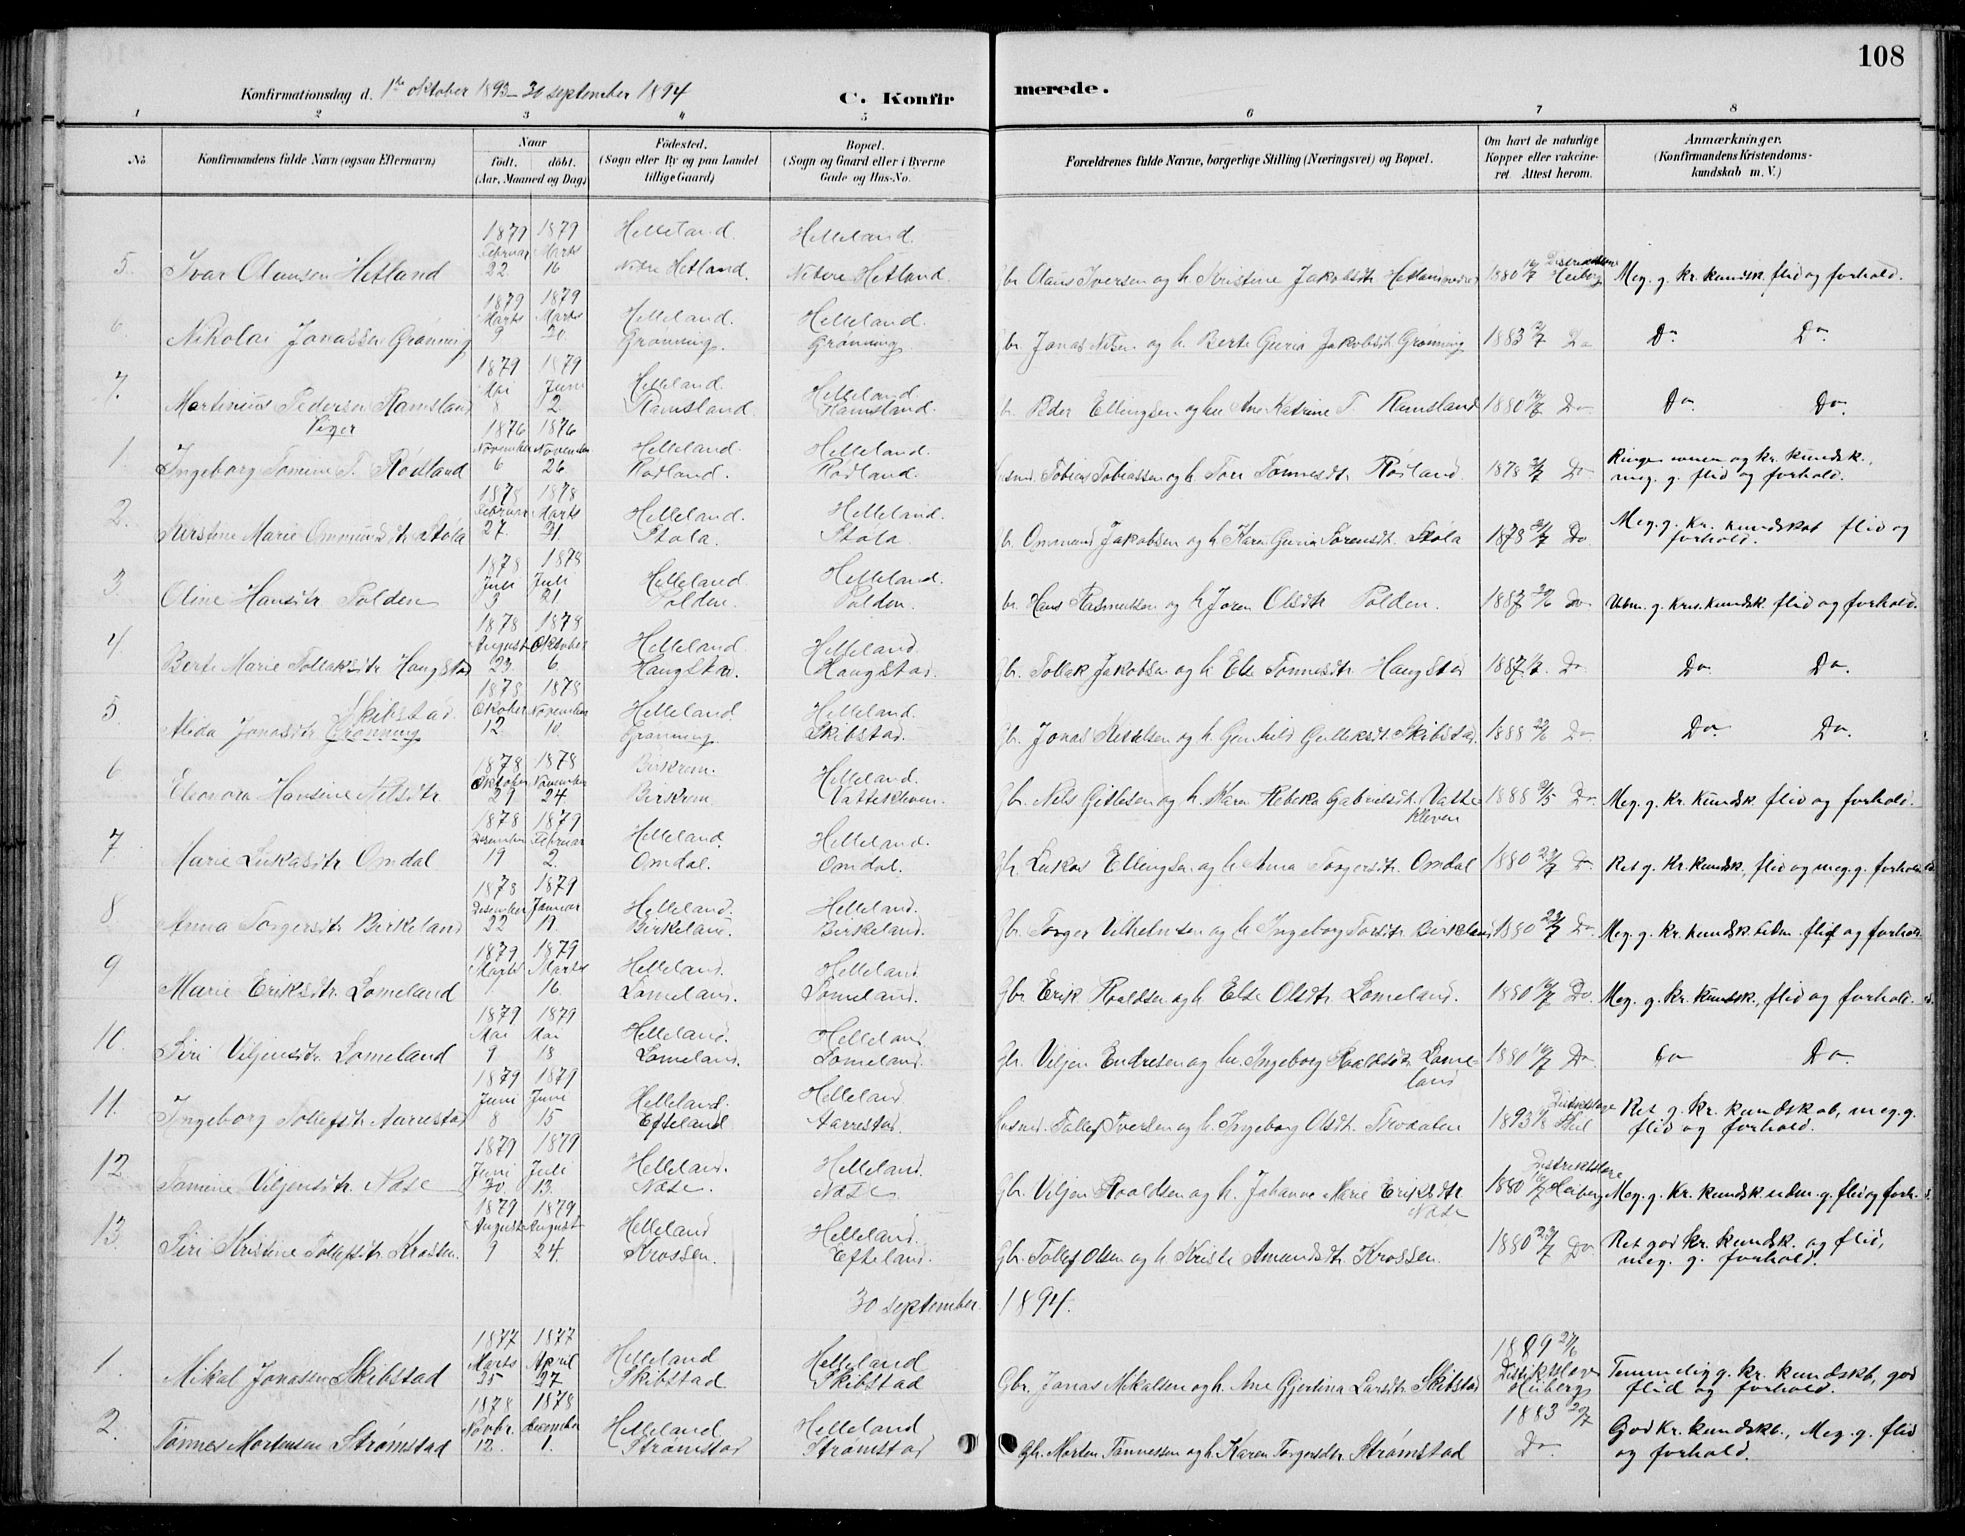 108
Konfirmationsdag d. 1ste oktober 1893 - 30 september 1894
C. Konfirmerede.
1 2 3 4 5 6 7 8
No
Konfirmandens fulde Navn (ogsaa Efternavn)
Naar
født. døbt.
(Aar, Maaned og Dag)
Fødested.
(Sogn eller By og paa Landet
tillige Gaard)
Bopæl.
(Sogn og Gaard eller i Byerne
Gade og Hus-No.
Forældrenes fulde Navne, borgerlige Stilling (Næringsvei) og Bopæl.
Om havt de naturlige
Kopper eller vakcine-
ret. Attest herom.
Anmærkninger.
(Konfirmandens Kristendoms-
kundskab m. V.)
5. Ivar Olausen Hetland 1879 Februar 22. 1879 Marts 16 Helleland. Nedre Hetland. Helleland. Nedre Hetland Gbr. Olaus Iversen og h. Kristine Jakobsdtr Hetland nedre 1880 16/7 Heiberg Meg. g. kr. kundsk. flid og forhold.
6 Nikolai Jonassen Grønning 1879 Marts 9 1879 Marts 30. Helleland. Grønning. Helleland. Grønning. Gbr. Jonas Nilsen og h. Berte Guria Jakobsdtr Grønning 1883 Do Do Do
7. Martinius Pedersen Ramsland 1879 Mai 8 1879 Juni 2. Helleland. Ramsland Helleland. Ramsland. Peder Ellingsen og h. Ane Katrine T. Ramsland 1880 16/7 Do Do. Do.
Piger
1 Ingeborg Tomine T. Rødland 1876 November 6 1876 November 26 Helleland. Rødland. Helleland. Rødland. Husmd. Tobias Tobiassen og h. Tone Tønnesdtr Rødland. 1878 Do Ringe evner og kr. kundsk.,
meg. g. flid og forhold.
2. Kirstine Marie Ommundsdtr Støla 1878 Februar 27. 1878 Marts 31. Helleland. Støla. Helleland. Støla. Ommund Jakobsen og h. Karen Guria Sørensdtr. Støla 1878 Do Meg. g. kr. kundskab flid og
forhold.
3. Oline Hansdtr Polden 1878 Juli 3 1878 Juli 21 Helleland Polden. Helleland. Polden. Hans Rasmussen og h. Joren Olsdtr Polden. 1887 Do Udm. g. kris. kundsk. flid og forhold.
4. Berte Marie Tollaksdtr Haugstad 1878 August 23. 1878 Oktober 6. Helleland. Haugstad. Helleland. Haugstad. Gbr. Tollak Jakobsen og h. Else Tønnesdtr Haugstad 1887 Do Do. Do.
5. Alida Jonasdtr Grønning Skibstad. 1878 Oktober 12. 1878 November 10. Helleland. Grønning. Helleland. Skibstad. Gbr. Jonas og h. Gunhild Gulleksdtr. Skibstad. 1888 Do Do. Do.
6 Eleonora Hansine Nilsdtr 1878 Oktober 29 1878 November 24 Birkrem. Birkrem Helleland. Vattekleven. Gbr. Nils Gitlesen og h. Karen Rebekka Gabrielsdtr. Vatte
kleven 1888 Do Meg. g. kr. kundsk. flid og forhold.
7 Marie Lukasdtr Omdal 1878 Desember 19 1879 Februar 2. Helleland. Omdal. Helleland. Omdal. Gbr. Lukas Ellingsen og h. Anna Torgersdtr. Omdal 1880 23/7 Do. Ret g. kr. kundsk., flid og meg. g. forhold.
8 Anna Torgersdtr Birkeland 1878 Desember 22 1879 Januar Helleland. Birkeland. Helleland. Birkeland. Gbr. Torger Vilhelmsen og h. Ingeborg Birkeland 1880 23/7 Do. Meg. g. kr. kundsk. udm. flid og forhold.
9 Marie Eriksdtr. Lomeland 1879 Marts 1 1879 Marts 16. Helleland. Lomeland. Helleland Lomeland. Gbr. Erik Roaldsen og h. Else Olsdtr. Lomeland. 1880 16/7 Do. Meg. g. kr. kundsk., flid og forhold.
10. Siri Viljensdtr Lomeland 1879 Mai 9 1879 Mai 18. Helleland. Lomeland. Helleland. Lomeland. Gbr. Viljen Endresen og h. Ingeborg Roaldsdtr Lome-
land 1880 16/7 Do Do Do
11. Ingeborg Tollefsdtr Aarrestad 1879 Juni 8 1879 Juni 15 Helleland. Efteland Helleland Aarrestad. Husmd. Tollef Iversen og h. Ingeborg Olsdtr. 1893 Ret g. kr. kundskab, meg. g.
flid og forhold.
12. Tomine Viljensdtr. Nese 1879 Juni 30. 1879 Juli 13. Helleland. Nese. Helleland. Nese Gbr. Viljen Roaldsen og h. Johanne Marie Eriksdtr
Nese 1880 16/7 Distriktslæge Heiberg Meg. g. kr. kundsk. udm. g. flid og forh.
13. Siri Kristine Tollefsdtr Krossen. 1879 August 9 1879 August 24. Helleland Krossen. Helleland. Efteland. Gbr. Tollef Olsen og h. Amundsdtr. Krossen. 1880 23/7 Do Ret god kr. kundsk. og flid,
meg. g. forhold.
30 september 1894.
1. Mikal Jonasen Skibstad 1877 Marts 25 1877 April 27 Helleland Skibstad Helleland Skibstad Gbr. Jonas Mikalsen og h. Ane Gjertina Larsdtr Skibstad 1889 27/6 Heiberg Temmelig g. kr. kundskb, god
flid og forhold.
2. Tønnes Mortensen Strømstad 1878 Novbr. 12. 1878 December 1. Helleland Strømstad Helleland Strømstad Gbr. Morten Tønnessen og h. Karen Torgersdtr. Strømstad 1883 20/7 Do God kr. kundskb., Meg. g. flid
og forhold.